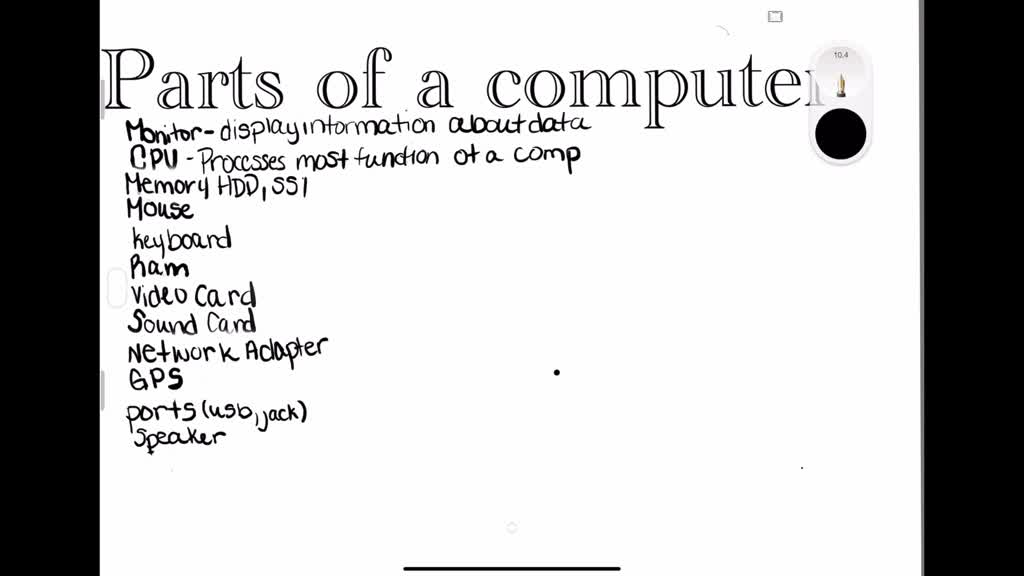 Parts of a computer
10.4
Monitor - display information about data
CPU - Processes most function of a comp
Memory HDD, SSI
Mouse
keyboard
Ram
Video Card
Sound Card
Network Adapter
GPS
ports (usb, jack)
Speaker